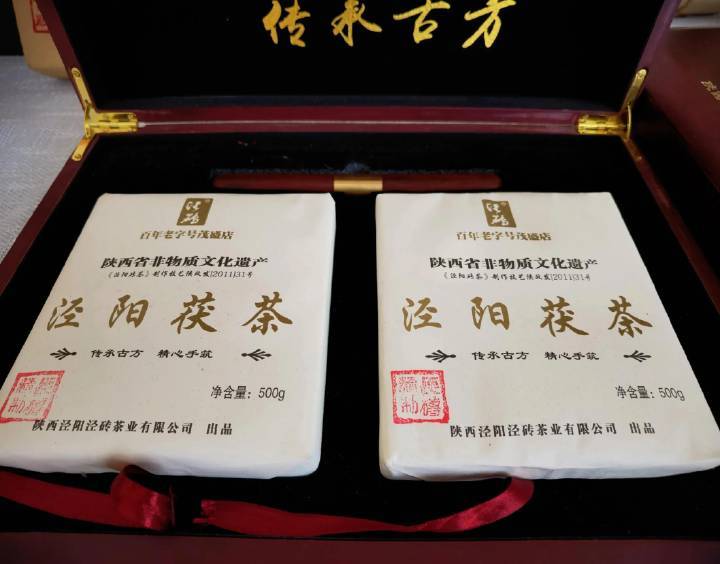 传承古方
泾砖
百年老字号茂盛店
陕西省非物质文化遗产
《泾阳砖茶》制作技艺陕政发[2011]31号
泾阳茯茶
传承古方 精心手筑
净含量：500g
陕西泾阳泾砖茶业有限公司 出品
泾砖
百年老字号茂盛店
陕西省非物质文化遗产
《泾阳砖茶》制作技艺陕政发[2011]31号
泾阳茯茶
传承古方 精心手筑
净含量：500g
陕西泾阳泾砖茶业有限公司 出品